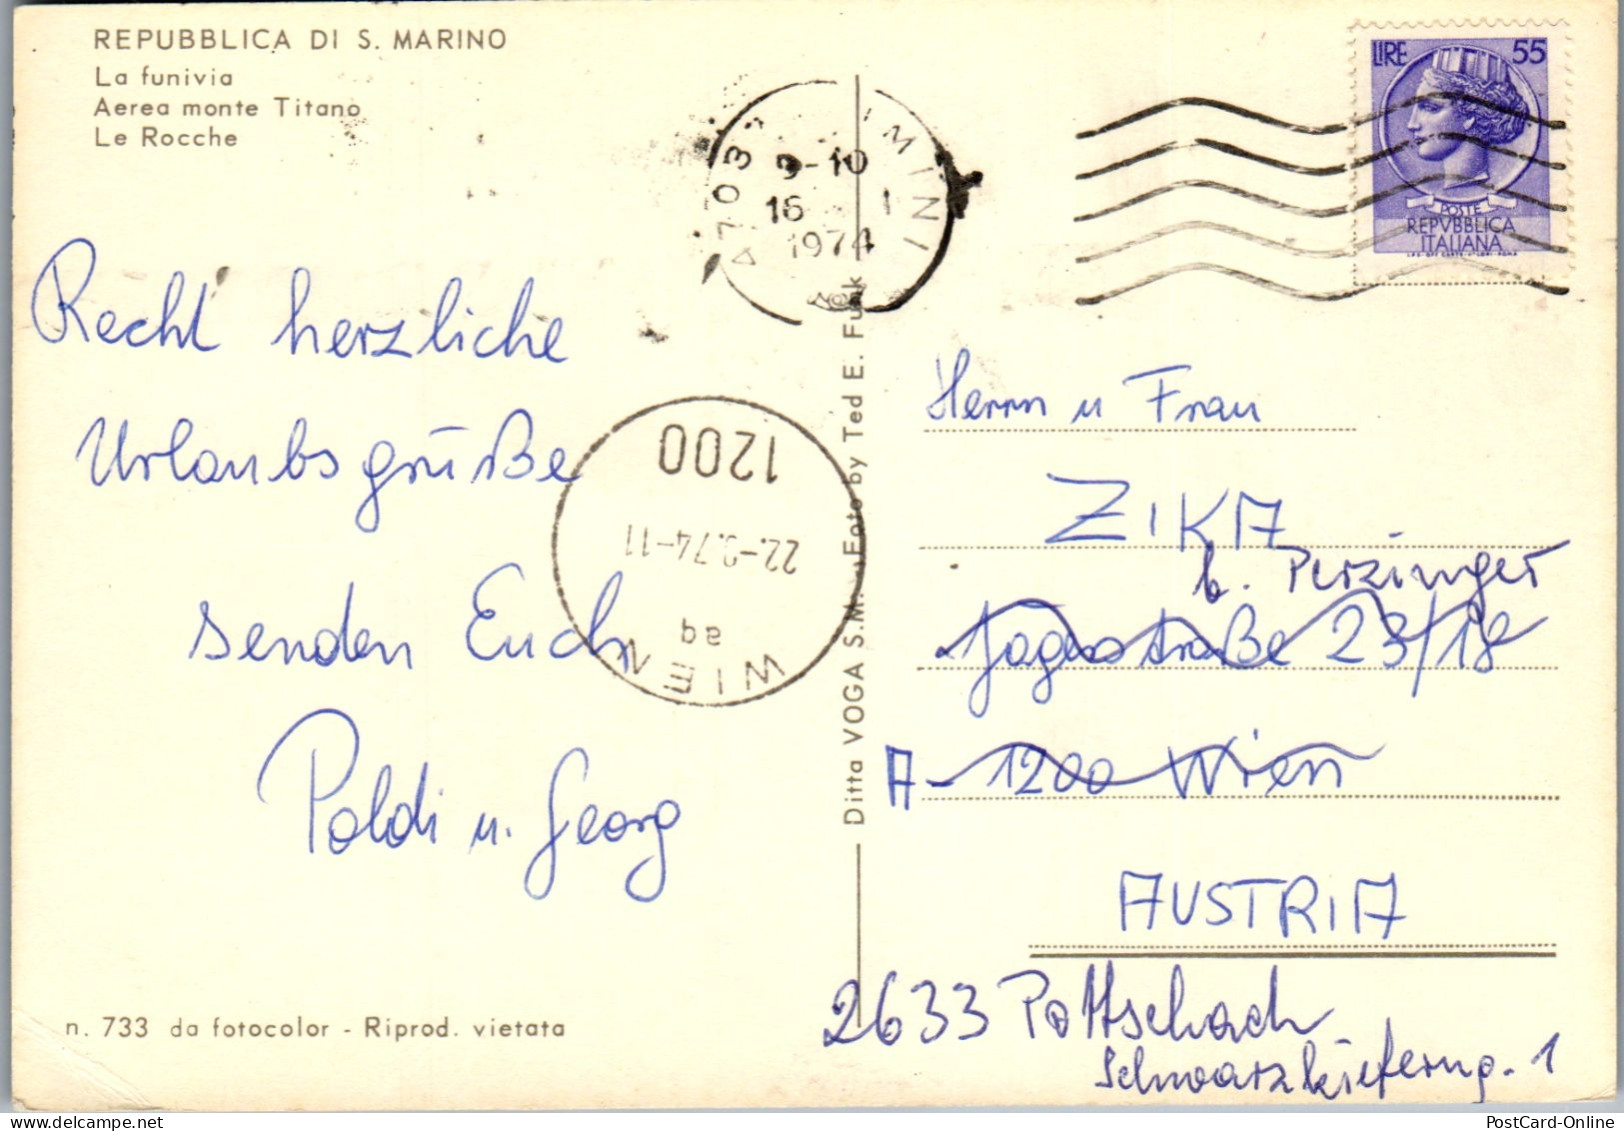 REPUBBLICA DI S. MARINO
La funivia
Aerea monte Titano
Le Rocche
LIRE 55
POSTE
REPVBBLICA
ITALIANA
IMINI
9-10
16
1974
Recht herzliche
Urlaubsgrüße
senden Euch
Poldi u. Georg
1200
22.-9.74-11
aq
WIEN
Ditta VOGA S.M. - Foto by Ted E. Funk
Herrn u Frau
ZIKA
b. Perzinger
23/18
A-1200 Wien
AUSTRIA
2633 Pottschach
Schwarzkieferng. 1
n. 733 da fotocolor - Riprod. vietata
PostCard-Online